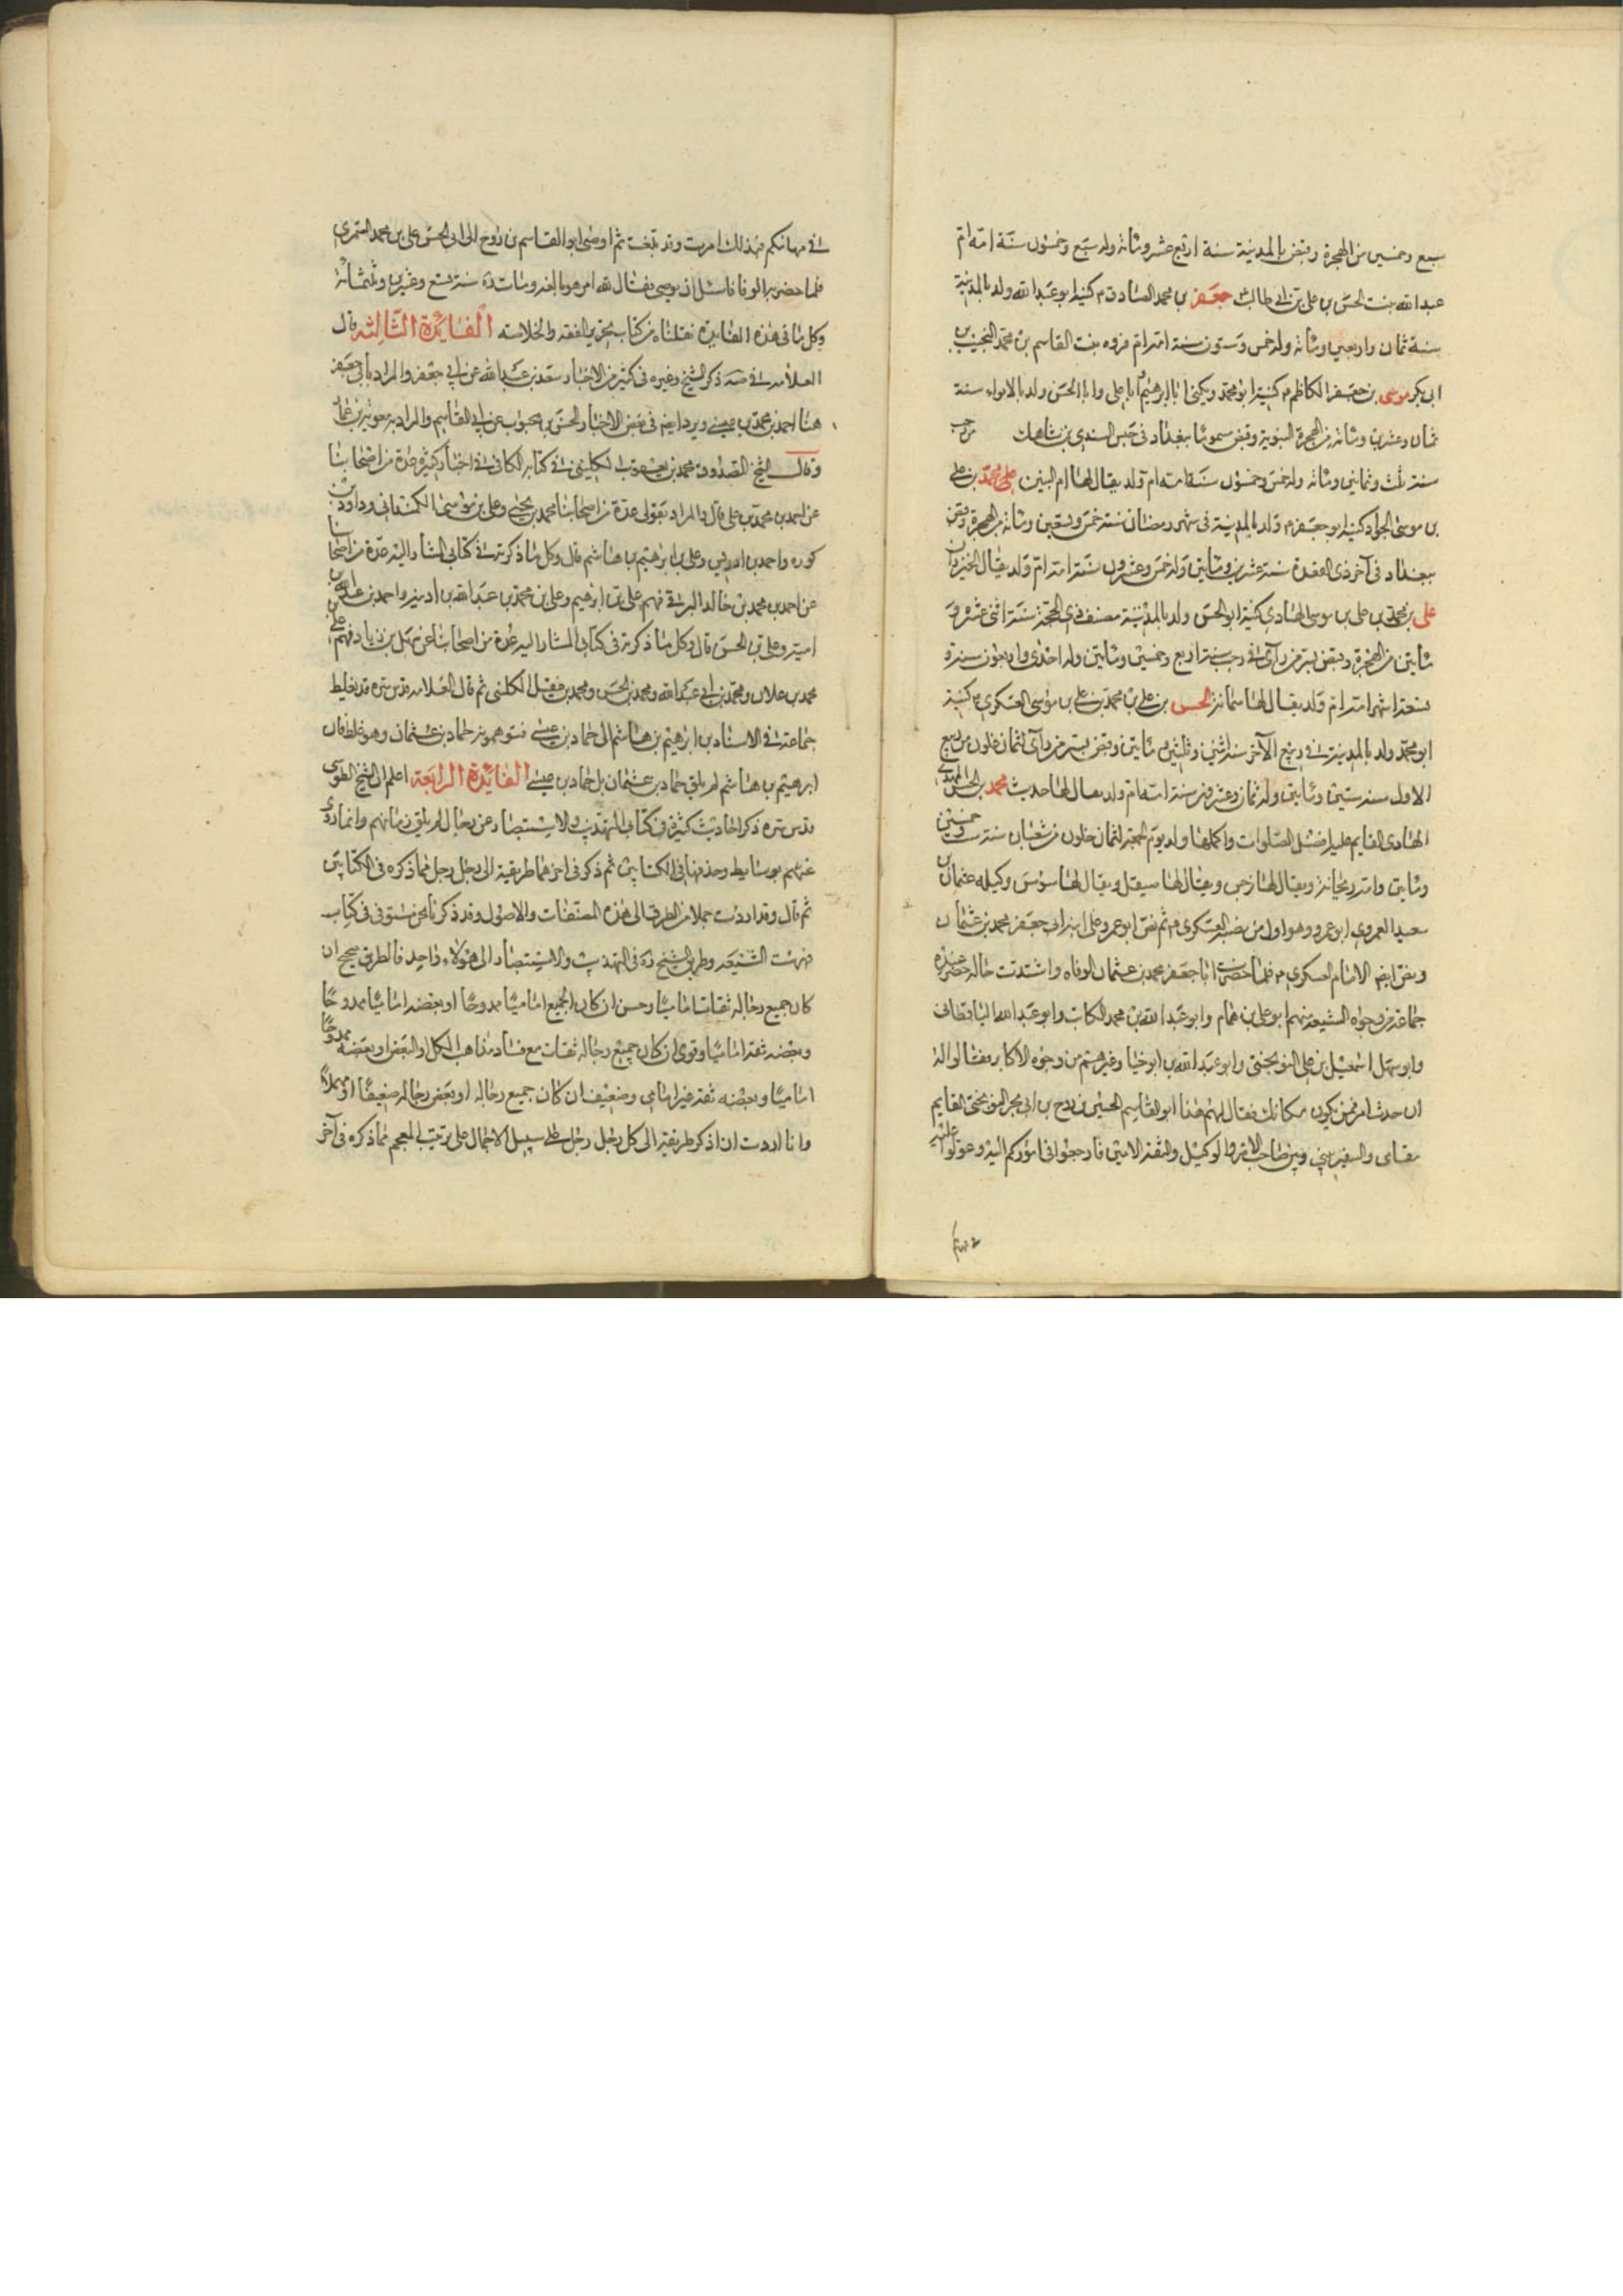 سبع وخمسين من الهجرة وقبض بالمدينة سنة اربع عشر ومائة وله سبع وخمسون سنة امه ام
عبدالله بنت الحسن بن علي بن ابي طالب جعفر بن محمد الصادق م كنيته ابو عبدالله ولد بالمدينة
سنة ثمان واربعين ومائه وله خمس وستون سنة امه ام فروه بنت القاسم بن محمد النجيب بن
ابي بكر موسى بن جعفر الكاظم م كنيته ابو محمد ويكنى ابا ابرهيم وابا علي وابا الحسن ولد بالابواء سنة
ثمان وعشرين ومائه من الهجرة النبوية وقبض مسموما ببغداد في حبس السندي بن شاهك من رجب
سنة ثلث وثمانين ومائه وله خمس وخمسون سنة امه ام ولد يقال لها ام البنين علي محمد بن علي
بن موسى الجواد كنيته ابو جعفر م ولد بالمدينة في شهر رمضان سنة خمس وتسعين ومائه من الهجرة وقبض
ببغداد في آخر ذي القعدة سنة عشرين ومأتين وله خمس وعشرون سنة امه ام ولد يقال الخيزران
علي بن محمد بن علي بن موسى الهادي كنيته ابو الحسن ولد بالمدينة منتصف ذي الحجة سنة اثنى عشره و
مأتين من الهجرة وقبض بسر من رأى في رجب سنة اربع وخمسين ومأتين وله احدى واربعون سنة و
تسعة اشهر امه ام ولد يقال لها سمانه الحسن بن علي بن محمد بن علي بن موسى العسكري م كنيته
ابو محمد ولد بالمدينة في ربيع الآخر سنة اثنين وثلثين ومأتين وقبض بسر من رأى لثمان خلون من ربيع
الاول سنة ستين ومأتين وله ثمان وعشرون سنة امه ام ولد يقال لها حديث محمد بن الحسن المهدي
الهادي القايم عليه افضل الصلوات واكملها ولد يوم الجمعة لثمان خلون من شعبان سنة ست وخمسين
ومأتين وامه ريحانة ويقال لها نرجس ويقال لها صيقل ويقال لها سوسن وكيله عثمان بن
سعيد العمروي ابو عمرو وهو اول من نصبه العسكري م ثم نص ابو عمرو على ابنه ابي جعفر محمد بن عثمان
ونص ايضا الامام العسكري م فلما حضرت ابا جعفر محمد بن عثمان الوفاه واشتدت حاله حضر عنده
جماعة من وجوه الشيعة منهم ابو علي بن همام وابو عبدالله بن محمد الكاتب وابو عبدالله الباقطاني
وابو سهل اسمعيل بن علي النوبختي وابو عبدالله بن الوجنا وغيرهم من وجوه الاكابر فقالوا له
ان حدث امر فمن يكون مكانك فقال لهم هذا ابو القاسم الحسين بن روح بن ابي بحر النوبختي القايم
مقامي والسفير بيني وبين صاحب الامر والوكيل والثقة الامين فارجعوا في اموركم اليه وعولوا عليه
في مهماتكم فبذلك امرت وقد بلغت ثم اوصى ابو القاسم بن روح الى ابي الحسن علي بن محمد السمري
فلما حضرته الوفاة سئل ان يوصي فقال لله امر هو بالغه ومات ره سنة تسع وعشرين وثلثمائه
وكل ما في هذه الفايدة نقلناه من كتاب تحرير الفقه والخلاصه الفائدة الثالثه قال
العلامه في صه ذكر الشيخ وغيره في كثير من الاخبار سعد بن عبدالله عن ابي جعفر والمراد بابي جعفر
هنا احمد بن محمد بن عيسى ويرد ايضا في بعض الاخبار الحسن بن محبوب عن ابي القاسم والمراد به معويه بن عمار
وقال الشيخ الصدوق محمد بن يعقوب الكليني في كتابه الكافي في اخبار كثيره عدة من اصحابنا
عن احمد بن محمد بن عيسى قال والمراد بقولي عدة من اصحابنا محمد بن يحيى وعلي بن موسى الكمنداني وداود بن
كوره واحمد بن ادريس وعلي بن ابرهيم بن هاشم قال وكل ما ذكرته في كتابي المشار اليه عدة من اصحابنا
عن احمد بن محمد بن خالد البرقي فهم علي بن ابرهيم وعلي بن محمد بن عبدالله بن اذينه واحمد بن عبدالله بن
اميه وعلي بن الحسن قال وكل ما ذكرته في كتابي المشار اليه عدة من اصحابنا عن سهل بن زياد فهم علي بن
محمد بن علان ومحمد بن ابي عبدالله ومحمد بن الحسن ومحمد بن عقيل الكليني ثم قال العلامه قدس سره قد يغلط
جماعة في الاسناد من ابرهيم بن هاشم الى حماد بن عيسى فيتوهمونه حماد بن عثمان وهو غلط فان
ابرهيم بن هاشم لم يلق حماد بن عثمان بل حماد بن عيسى الفائدة الرابعة اعلم ان الشيخ الطوسي
قدس سره ذكر احاديث كثيره في كتاب التهذيب والاستبصار عن رجال لم يلق زمانهم وانما روى
عنهم بوسايط وحذفها في الكتابين ثم ذكر في اخرهما طريقه الى رجل رجل مما ذكره في الكتابين
ثم قال وقد اوردت جملا من الطرق الى هذه المصنفات والاصول وقد ذكرناه نحن مستوفى في كتاب
فهرست الشيعه وطريق الشيخ ره في التهذيب والاستبصار الى هؤلاء واحد فالطريق صحيح ان
كان جميع رجاله ثقات اماميا وحسن ان كان الجميع اماميا ممدوحا او بعضه اماميا ممدوحا
وبعضه ثقه اماميا وقوي ان كان جميع رجاله ثقات مع فساد مذاهب الكل او البعض او بعضه ممدوحا
اماميا وبعضه ثقه غير امامي وضعيف ان كان جميع رجاله او بعض رجاله ضعيفا او مهملا
وانا اردت ان اذكر طريقه الى كل رجل رجل على سبيل الاجمال على ترتيب المعجم مما ذكره في آخر